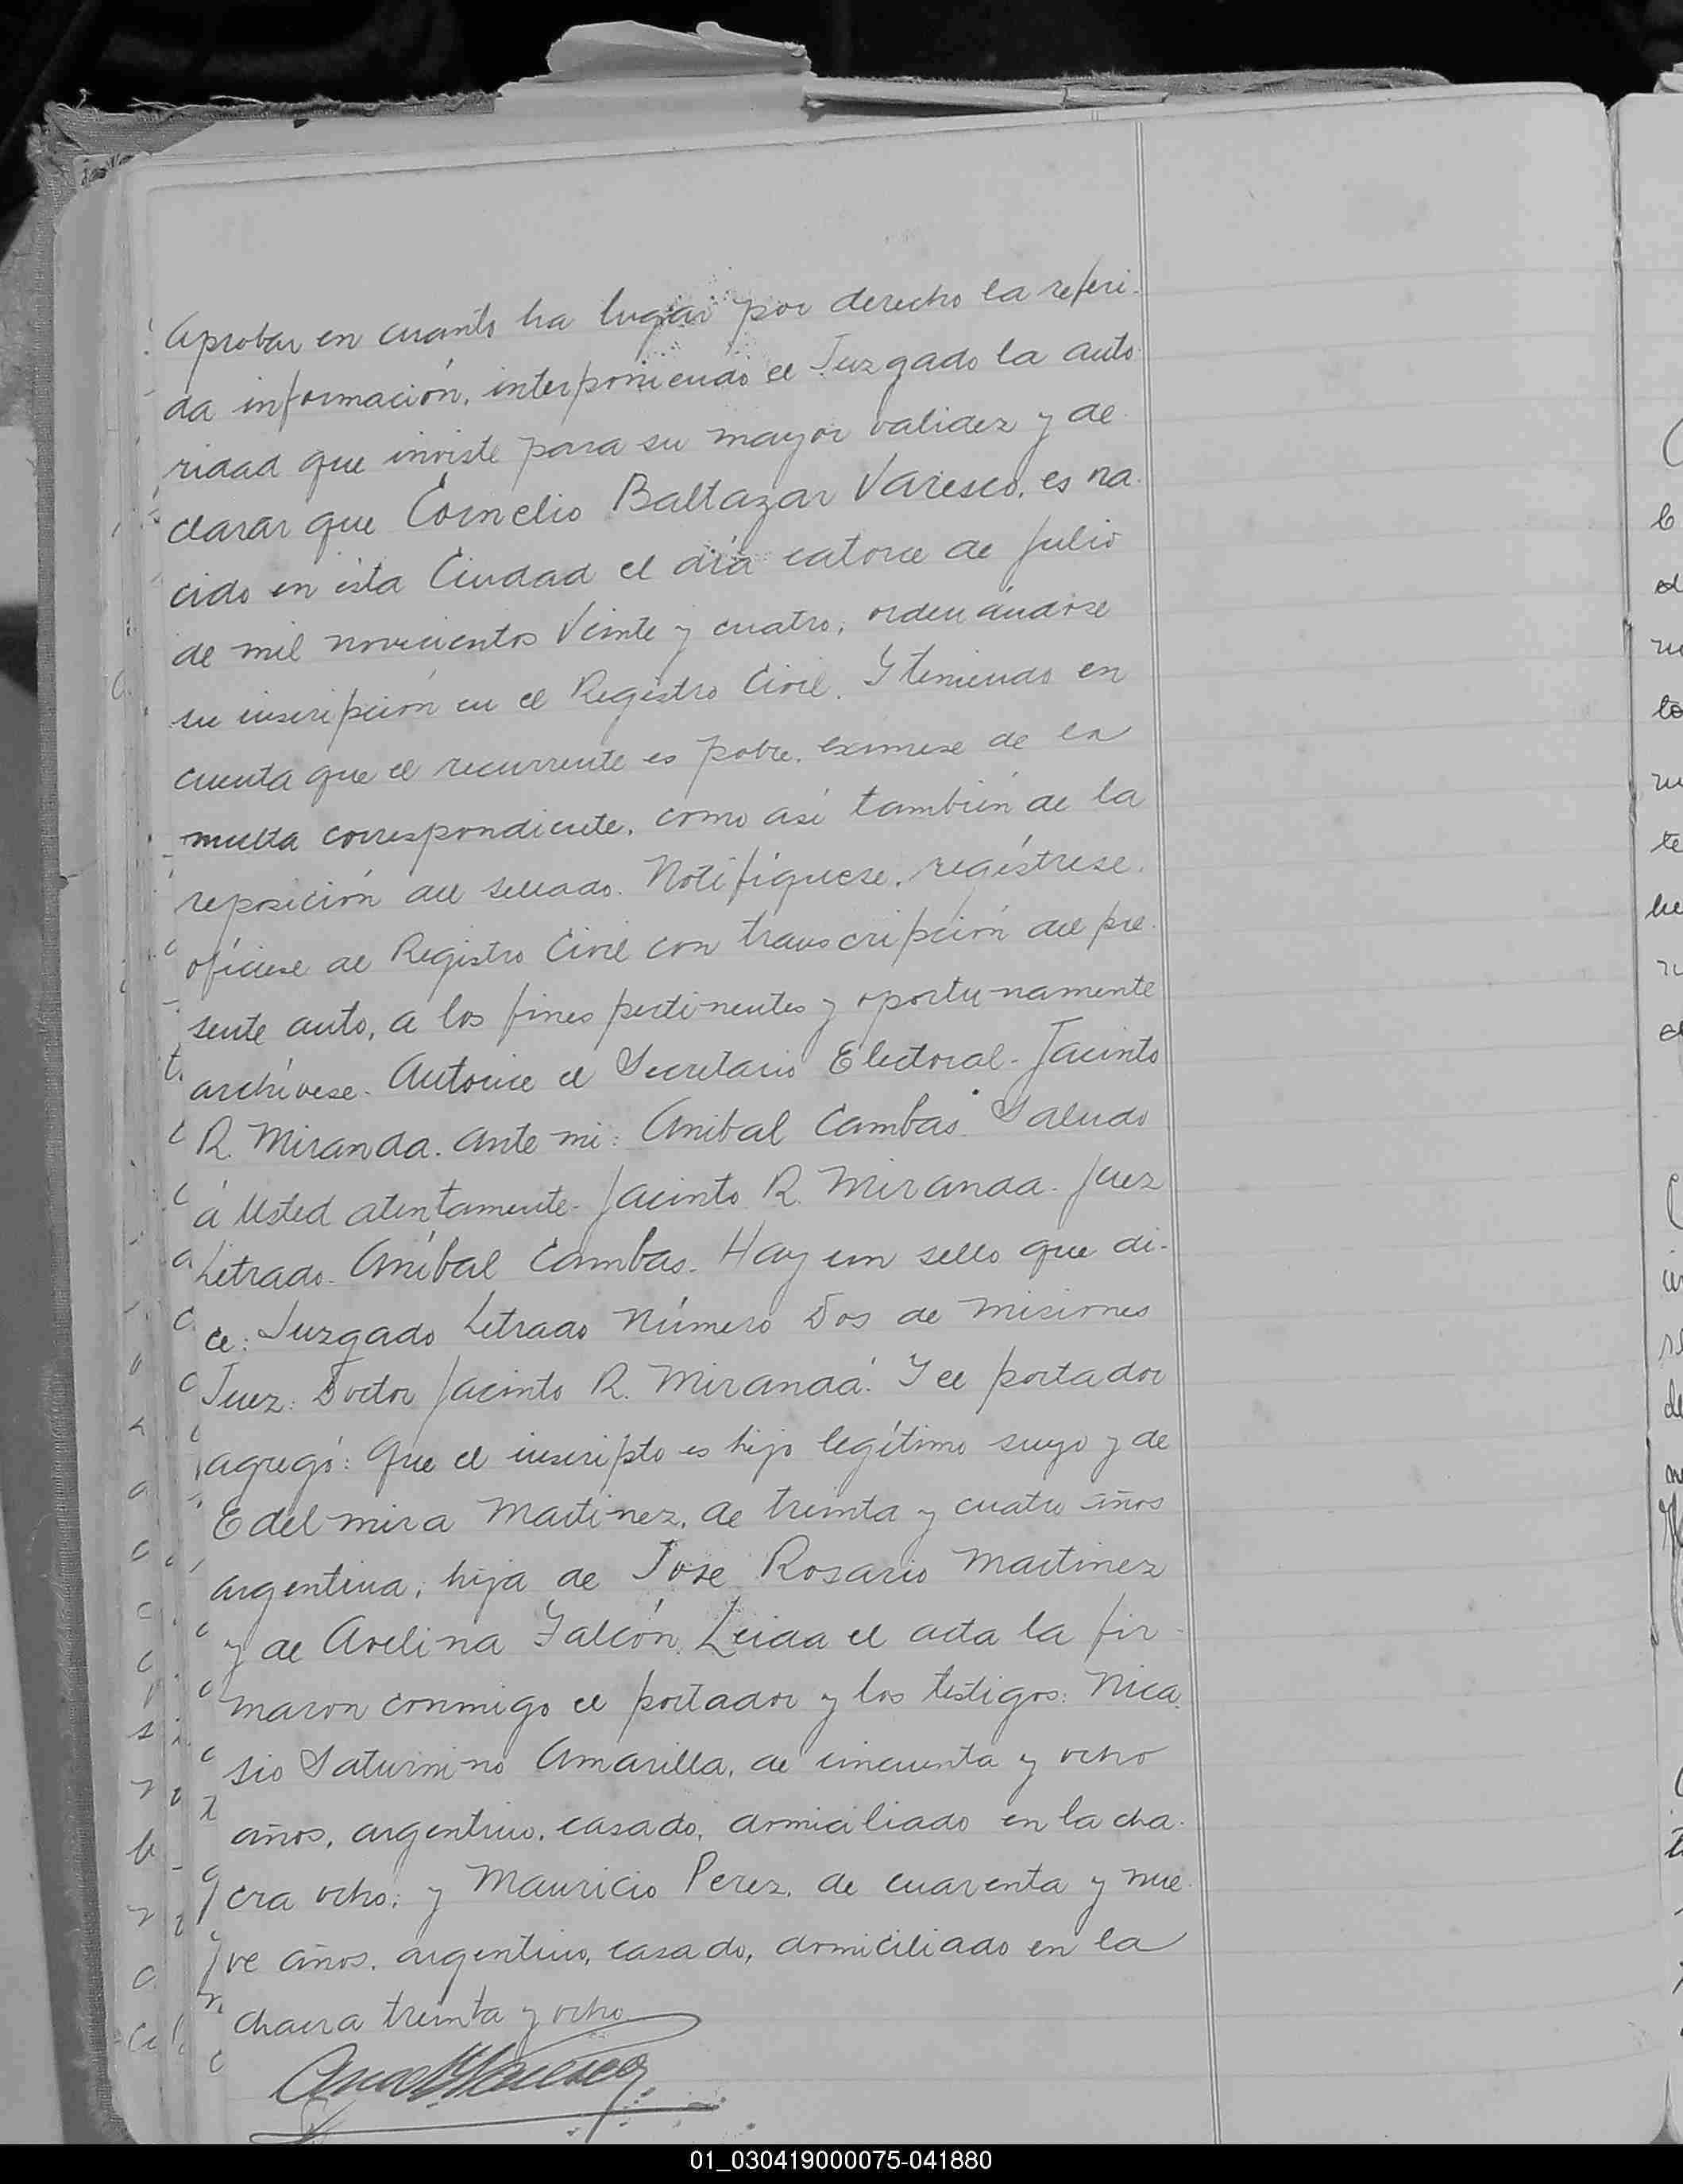 Aprobar en cuanto ha lugar por derecho la referi-
da información, interponiendo el Juzgado la auto-
ridad que inviste para su mayor validez y de-
clarar que Cornelio Baltazar Varesco, es na-
cido en ésta Ciudad el día catorce de Julio
de mil novecientos Veinte y cuatro, ordenándose
su inscripción en el Registro Civil. Y teniendo en
cuenta que el recurrente es pobre, exímese de la
multa correspondiente, como así también de la
reposición del sellado. Notifíquese, regístrese,
ofíciese al Registro Civil con transcripción del pre-
sente auto, a los fines pertinentes y oportunamente
archívese. Autorice el Secretario Electoral - Jacinto
R. Miranda. Ante mi: Anibal Cambas. Saludo
á Usted atentamente - Jacinto R. Miranda - Juez
Letrado. Aníbal Cambas. Hay un sello que di-
ce: Juzgado Letrado Número Dos de Misiones
Juez: Doctor Jacinto R. Miranda. Y el portador
agregó: Que el inscripto es hijo legítimo suyo y de
Edelmira Martinez, de treinta y cuatro años
argentina, hija de Jose Rosario Martinez
y de Avelina Falcón. Leida el acta la fir-
maron conmigo el portador y los testigos: Nica-
sio Saturnino Amarilla, de cincuenta y ocho
años, argentino, casado, domiciliado en la cha-
cra ocho; y Mauricio Perez, de cuarenta y nue-
ve años, argentino, casado, domiciliado en la
chacra treinta y ocho
01_030419000075-041880